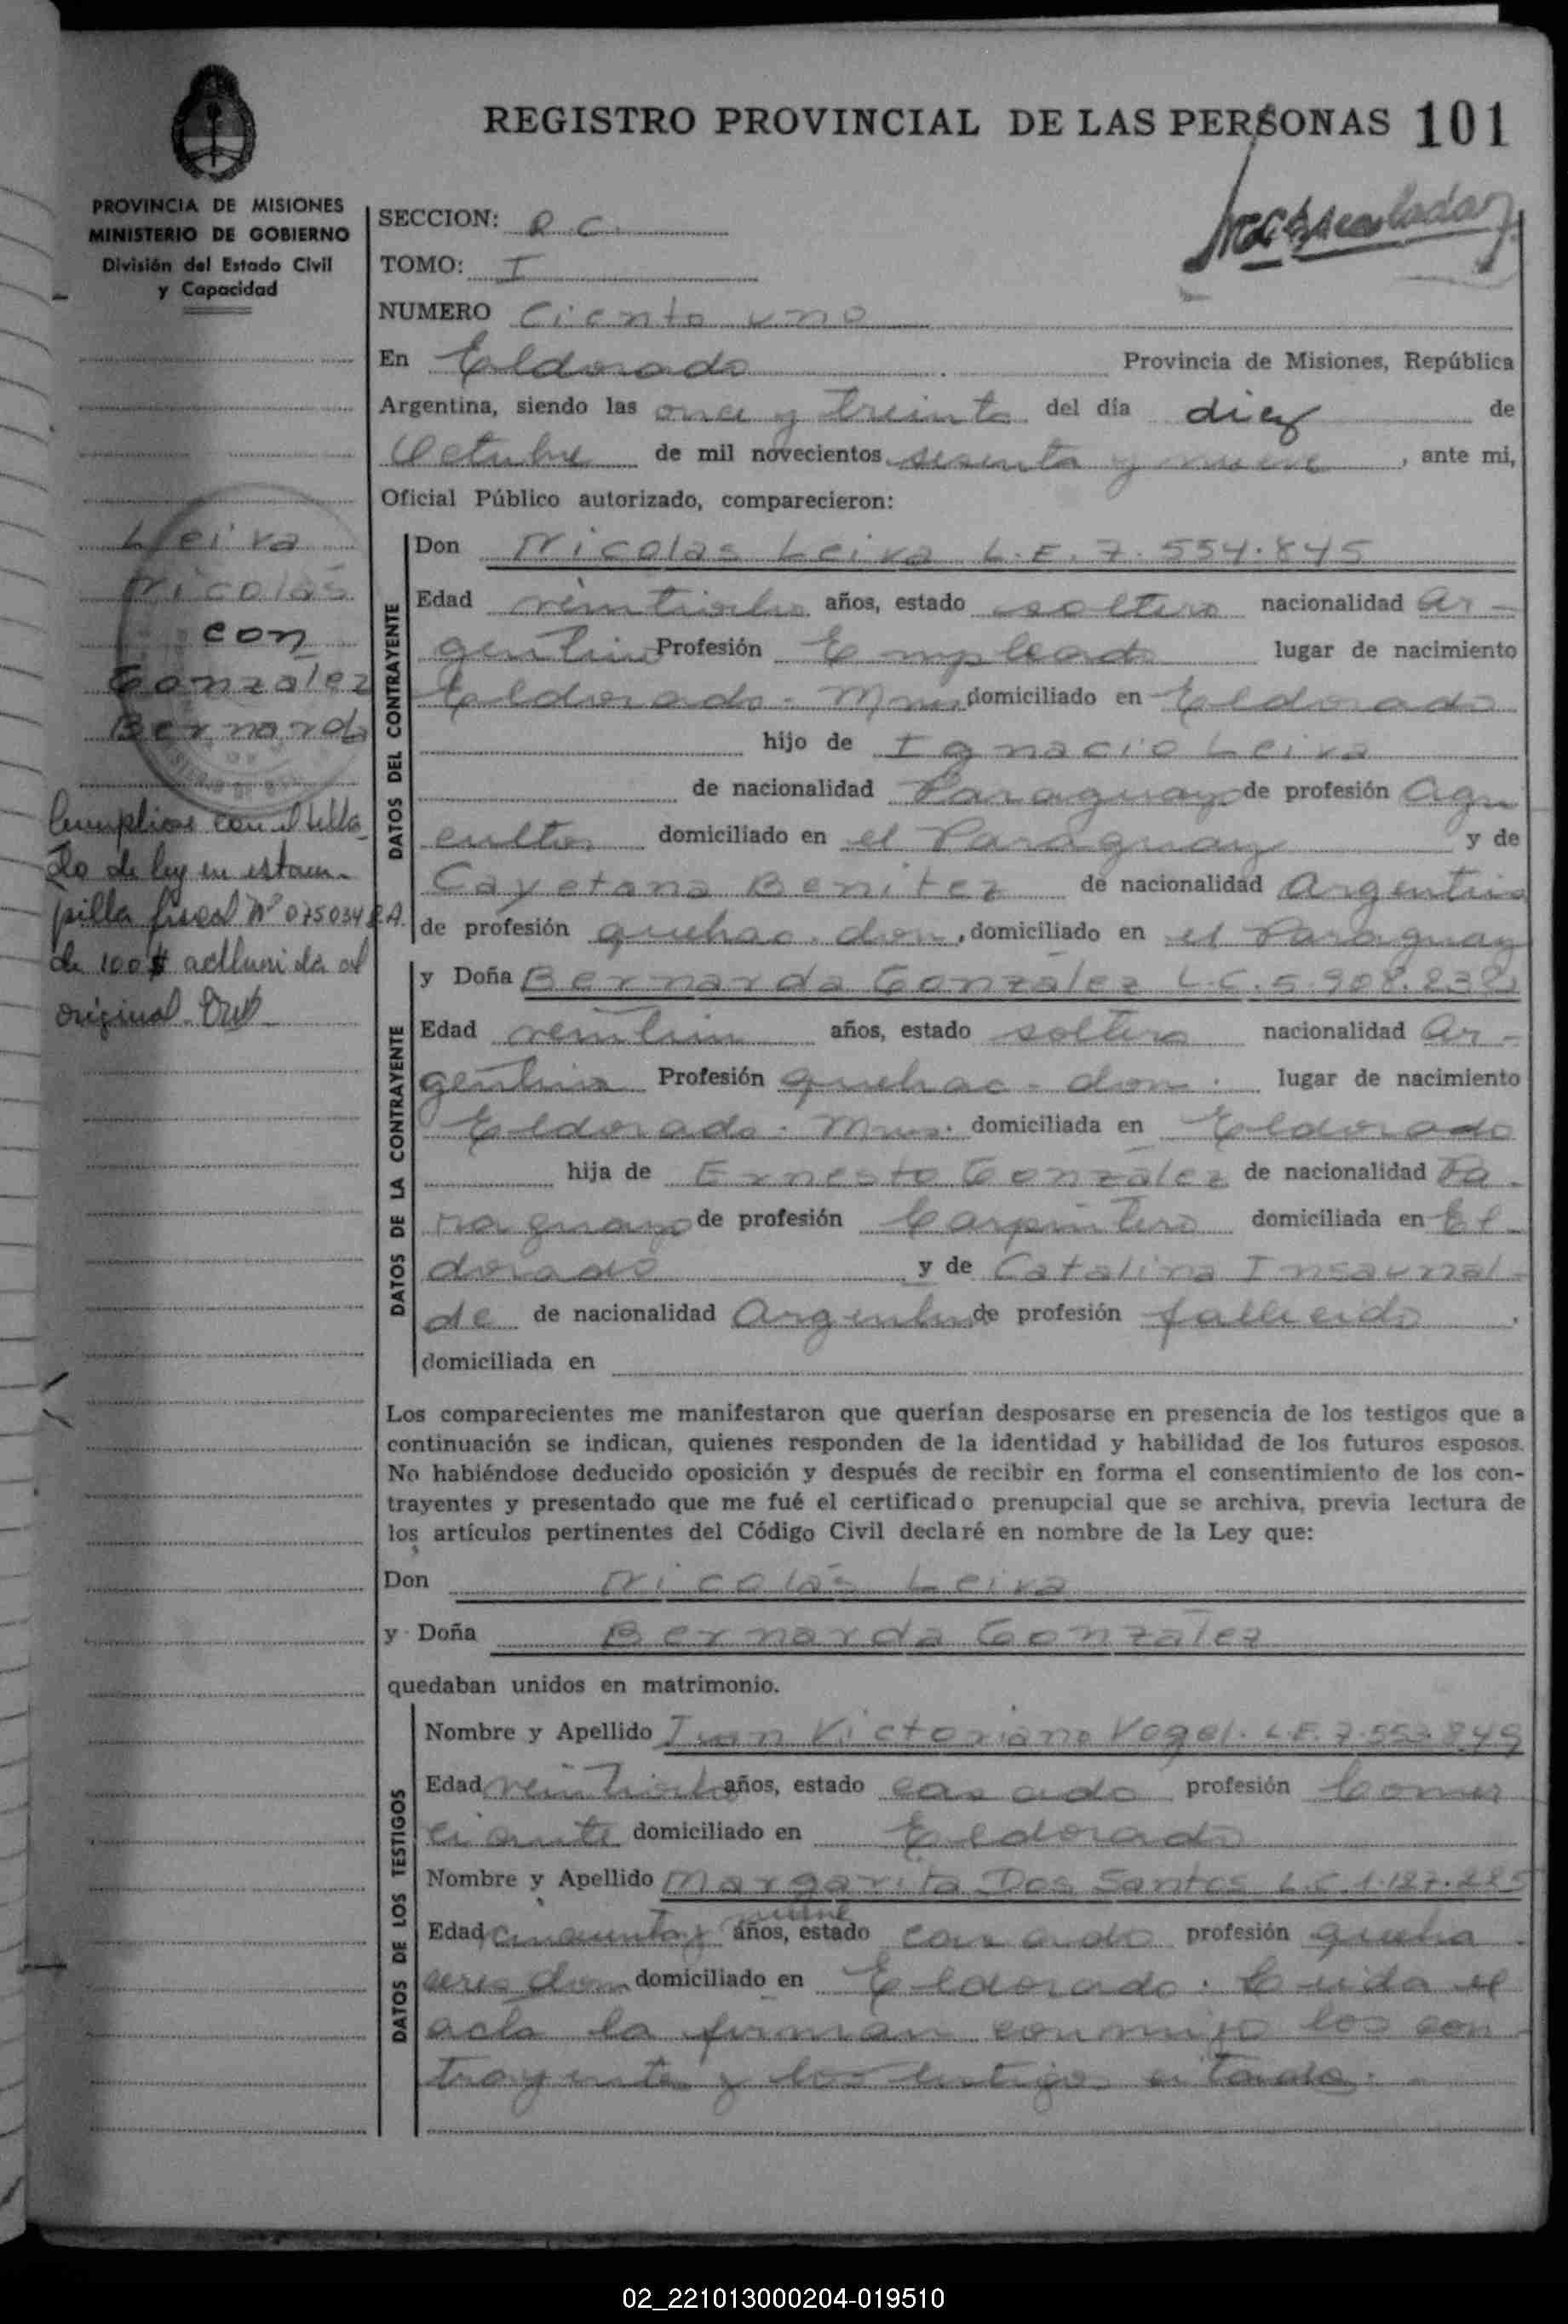 REGISTRO PROVINCIAL DE LAS PERSONAS 101
PROVINCIA DE MISIONES
MINISTERIO DE GOBIERNO
División del Estado Civil
y Capacidad
SECCION: R. C.
TOMO: I
NUMERO Ciento uno
En Eldorado Provincia de Misiones, República
Argentina, siendo las once y treinta del día diez de
Octubre de mil novecientos sesenta y nueve, ante mi,
Oficial Público autorizado, comparecieron:
Leiva
Nicolás
con
González
Bernarda
Cumpliose con el sella-
do de ley en estam-
pilla fiscal Nº 075034
de 100 $ adherida al
original
DATOS DEL CONTRAYENTE
Don Nicolas Leiva L.E. 7.554.845
Edad veintiocho años, estado soltero nacionalidad Ar-
gentino Profesión Empleado lugar de nacimiento
Eldorado - Mnes domiciliado en Eldorado
hijo de Ignacio Leiva
de nacionalidad Paraguay de profesión Agri
cultor domiciliado en el Paraguay y de
Cayetana Benitez de nacionalidad Argentina
de profesión quehac. dom, domiciliado en el Paraguay
DATOS DE LA CONTRAYENTE
y Doña Bernarda González L.C. 5.908.
Edad veintiun años, estado soltera nacionalidad Ar-
gentina Profesión quehac - dom. lugar de nacimiento
Eldorado - Mnes. domiciliada en Eldorado
hija de Ernesto González de nacionalidad Pa-
raguayo de profesión Carpintero domiciliada en El
dorado y de Catalina Insaurral-
de de nacionalidad Argentina de profesión fallecida.
domiciliada en
Los comparecientes me manifestaron que querían desposarse en presencia de los testigos que a
continuación se indican, quienes responden de la identidad y habilidad de los futuros esposos.
No habiéndose deducido oposición y después de recibir en forma el consentimiento de los con-
trayentes y presentado que me fué el certificado prenupcial que se archiva, previa lectura de
los artículos pertinentes del Código Civil declaré en nombre de la Ley que:
Don Nicolás Leiva
y Doña Bernarda González
quedaban unidos en matrimonio.
DATOS DE LOS TESTIGOS
Nombre y Apellido Juan Victoriano Vogel. L.E. 7.553.849
Edad veintiocho años, estado casado profesión Comer
ciante domiciliado en Eldorado
Nombre y Apellido Margarita Dos Santos L.C. 1.187.225
Edad cincuenta y nueve años, estado casada profesión queha
ceres dom domiciliado en Eldorado. Leída el
acta la firman conmigo los con-
trayentes y los testigos citados.
02_221013000204-019510